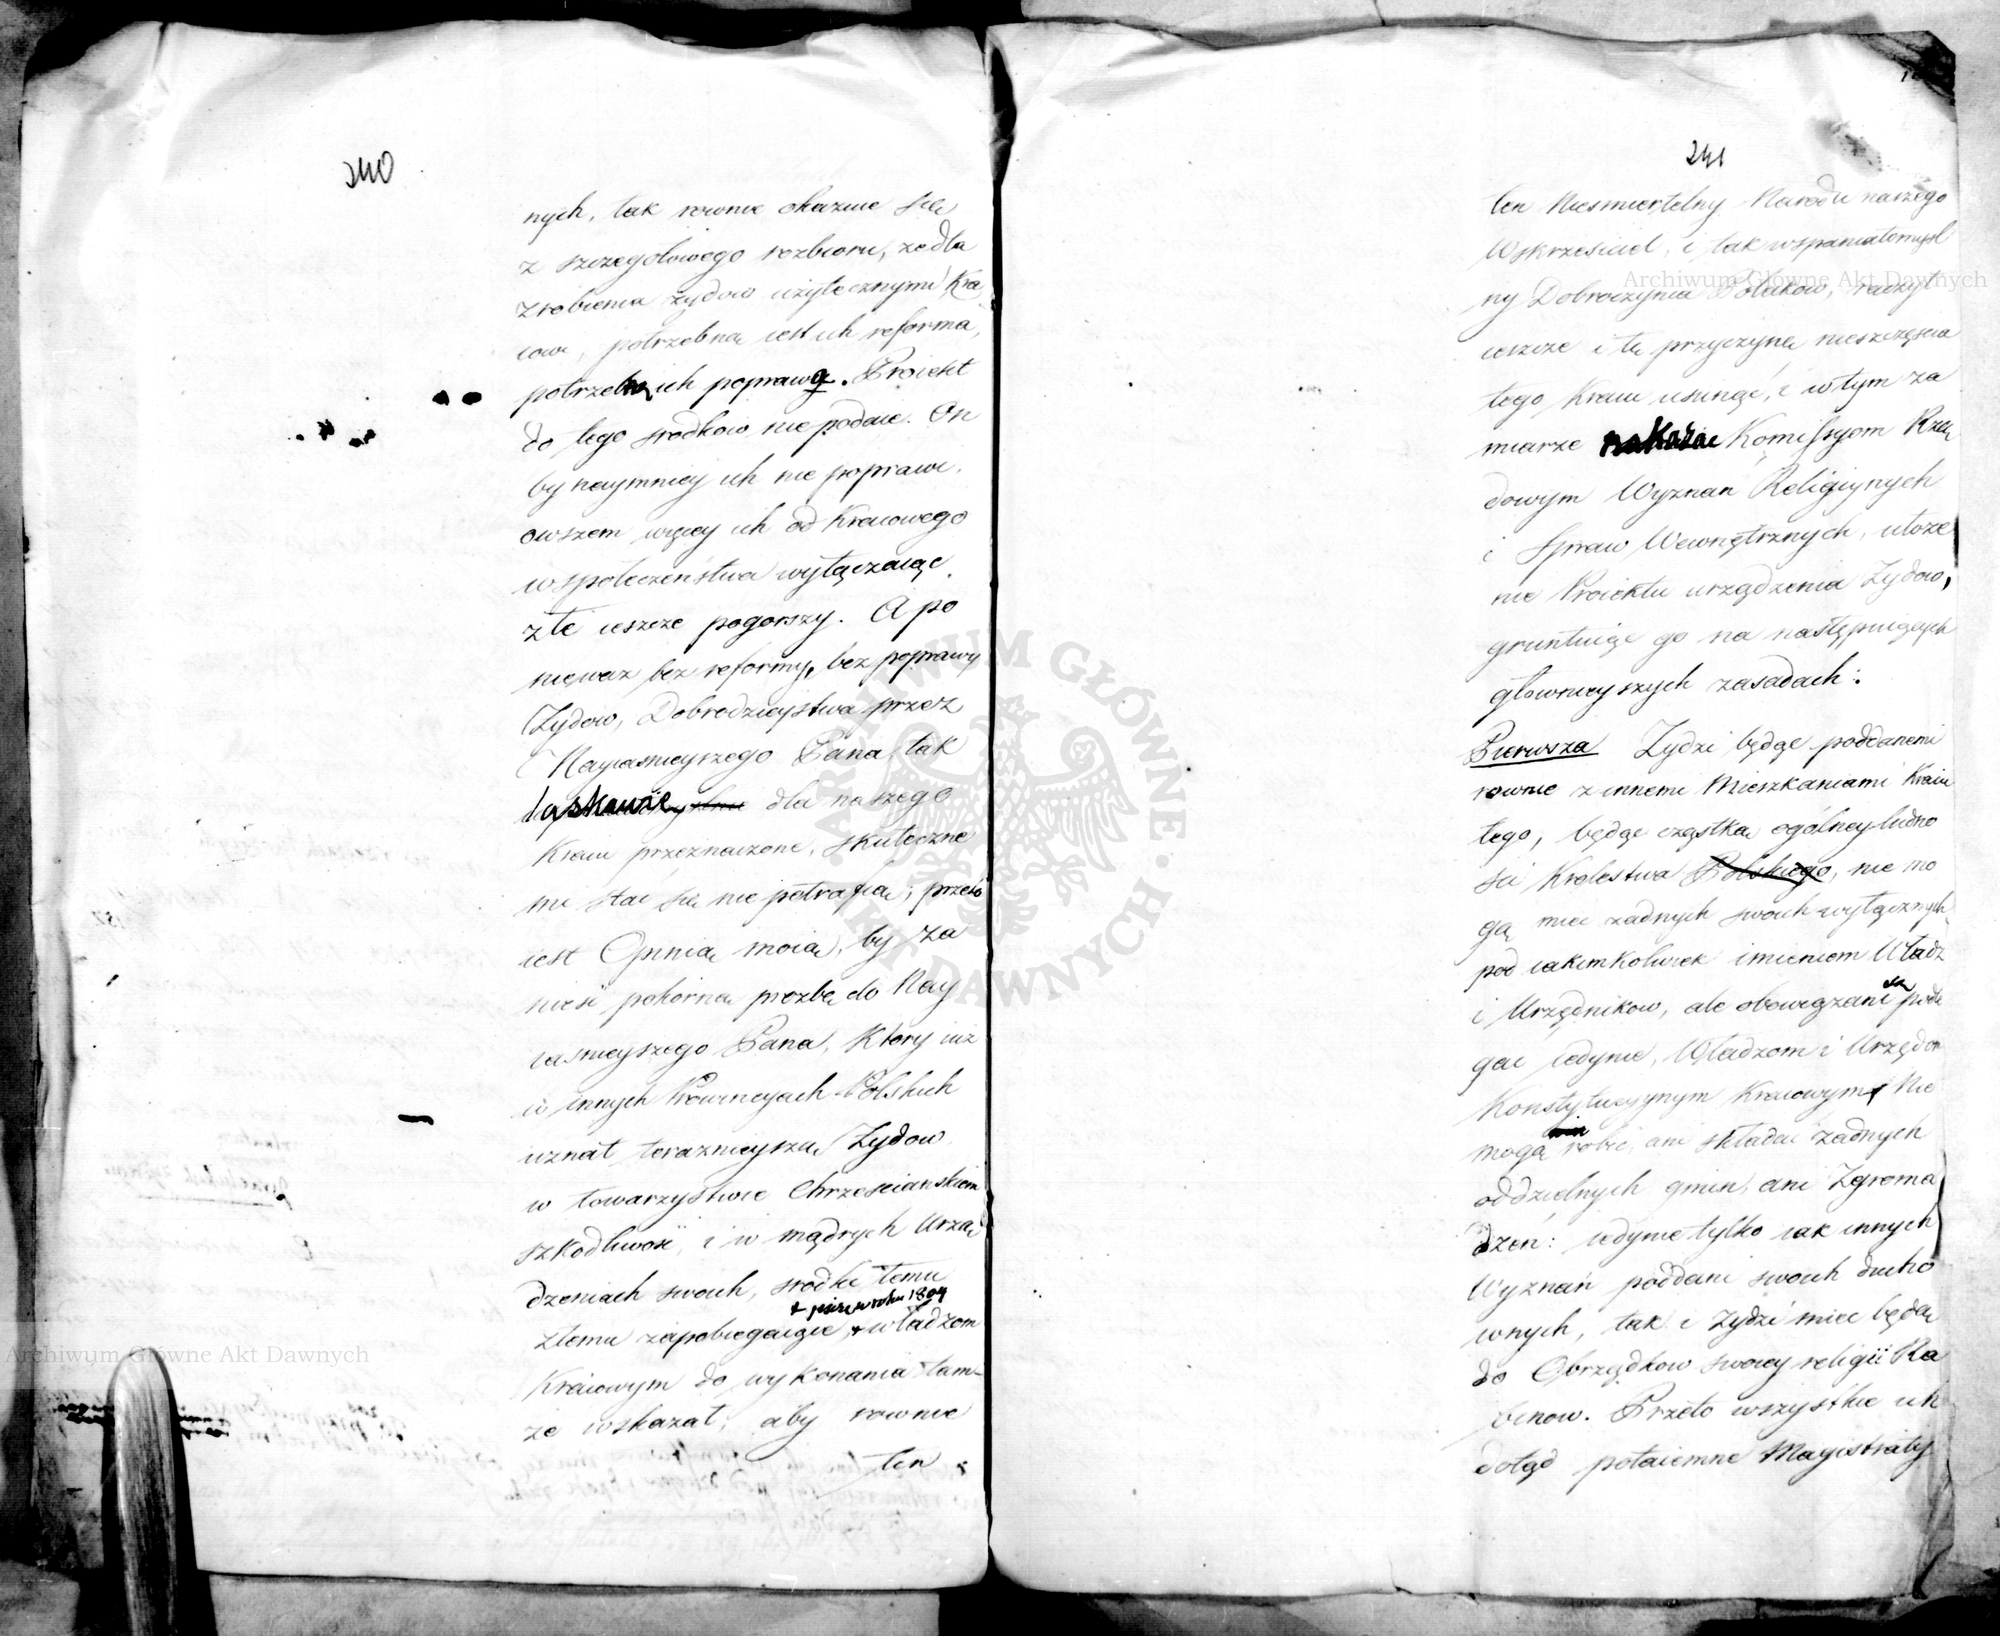 240
nych, tak rownie okazuie się
z szczegołowego rozbioru, że dla
zrobienia żydow użytecznymi Kra
iowi, potrzebna iest ich reforma,
potrzebna ich poprawa. Proiekt
do tego srodkow nie podaie. On
by naymniey ich nie poprawi,
owszem więcey ich od Kraiowego
w społeczenstwa wyłączaiąc,
złe ieszcze pogorszy. A po
nieważ bez reformy, bez poprawy
Żydow, Dobrodzieystwa przez
Nayiasnieyszego Pana tak
łaskawie dla naszego
Kraiu przeznaczone, skuteczne
mi stać się nie potrafią; przeto
iest Opinią moią, by za
nieść pokorną prozbę do Nay
iasnieyszego Pana, Ktory iuż
w innych Prowincyach Polskich
uznał teraznieyszą Żydow
w towarzystwie Chrzescianskiem
szkodliwość, i w mądrych Urzą
dzeniach swoich, srodki temu
+ ieszcze w roku 1804
złemu zapobiegaiące + władzom
Kraiowym do wykonania tam-
że wskazał; aby rownie
ten
241
ten Niesmiertelny Narodu naszego
Wskrzesiciel, i tak wspaniałomysl
ny Dobroczynca Polakow, raczył
ieszcze i tę przyczynę nieszczęscia
tego Kraiu usunąć, i w tym za
miarze nakazać Komissyom Rzą
dowym Wyznań Religiynych
i Spraw Wewnętrznych, ułoże
nie Proiektu urządzenia Żydow,
gruntuiąc go na następuiących
głownieyszych zasadach:
Pierwsza Żydzi będąc poddanemi
rownie z innemi Mieszkaniami Kraiu
tego, będąc cząstką ogólney ludno
sci Krolestwa Polskiego, nie mo
gą mieć żadnych swoich wyłącznych,
pod iakimkolwiek imieniem Władz
i Urzędnikow, ale obowiązani są podle
gać iedynie, Władzom i Urzędom
Konstytucyynym Kraiowym. Nie
mogą robić, ani składać żadnych
oddzielnych gmin, ani Zgroma
dzeń: iedynie tylko iak innych
Wyznań poddani swoich ducho
wnych, tak i Żydzi mieć będą
do Obrządkow swoiey religii Ra
binow. Przeto wszystkie ich
dotąd potaiemne Magistraty
Archiwum Główne Akt Dawnych
Archiwum Główne Akt Dawnych
ARCHIWUM GŁÓWNE AKT DAWNYCH